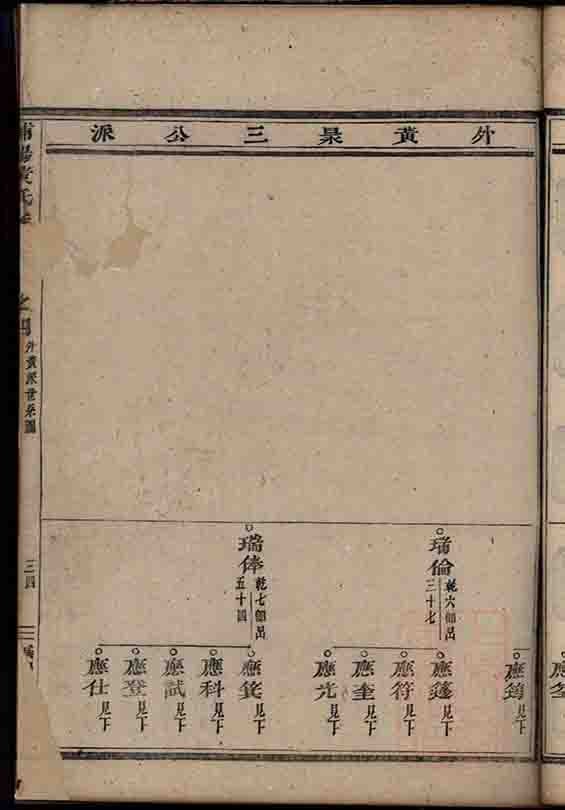 外黃景三公派
應筠見下
瑞倫
乾六個呂
三十七
應蓬見下
應符見下
應奎見下
應光見下
瑞俸
乾七個呂
五十四
應箕見下
應科見下
應試見下
應登見下
應仕見下
黃氏
之四
外黃派世系圖
三四